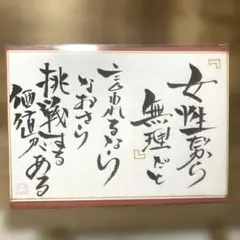 『女性だから
無理』だと
言われるなら
なおさら
挑戦する
価値がある